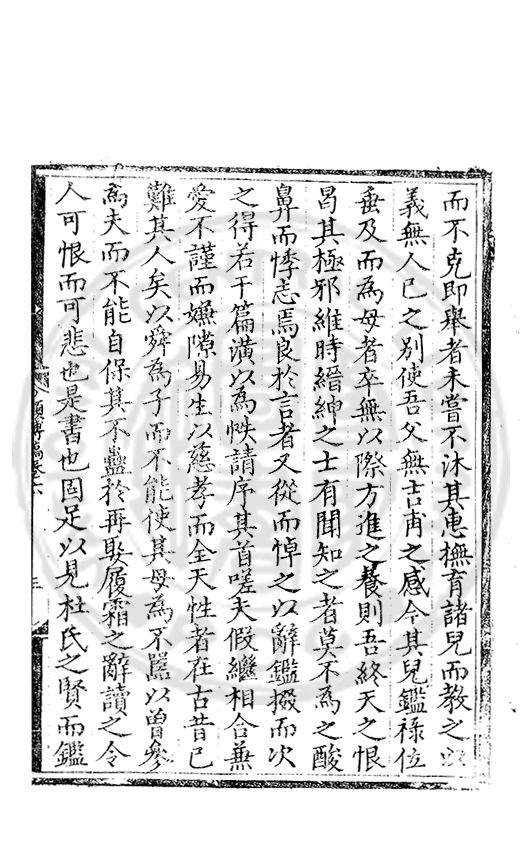 而不克即舉者未嘗不沐其惠撫育諸兒而教之以
義無人已之別使吾父無吉甫之感今其兒鑑祿位
垂及而為母者卒無以際方進之養則吾終天之恨
曷其極邪維時縉紳之士有聞知之者莫不為之酸
鼻而悸志焉良於言者又從而悼之以辭鑑掇而次
之得若干篇潢以為帙請序其首嗟夫假繼相合兼
愛不謹而嫌隙易生以慈孝而全天性者在古昔已
難其人矣以舜為子而不能使其母為不嚚以曾參
為夫而不能自保其不蠱於再娶履霜之辭讀之令
人可恨而可悲也是書也固足以見杜氏之賢而鑑
稿卷之六
三